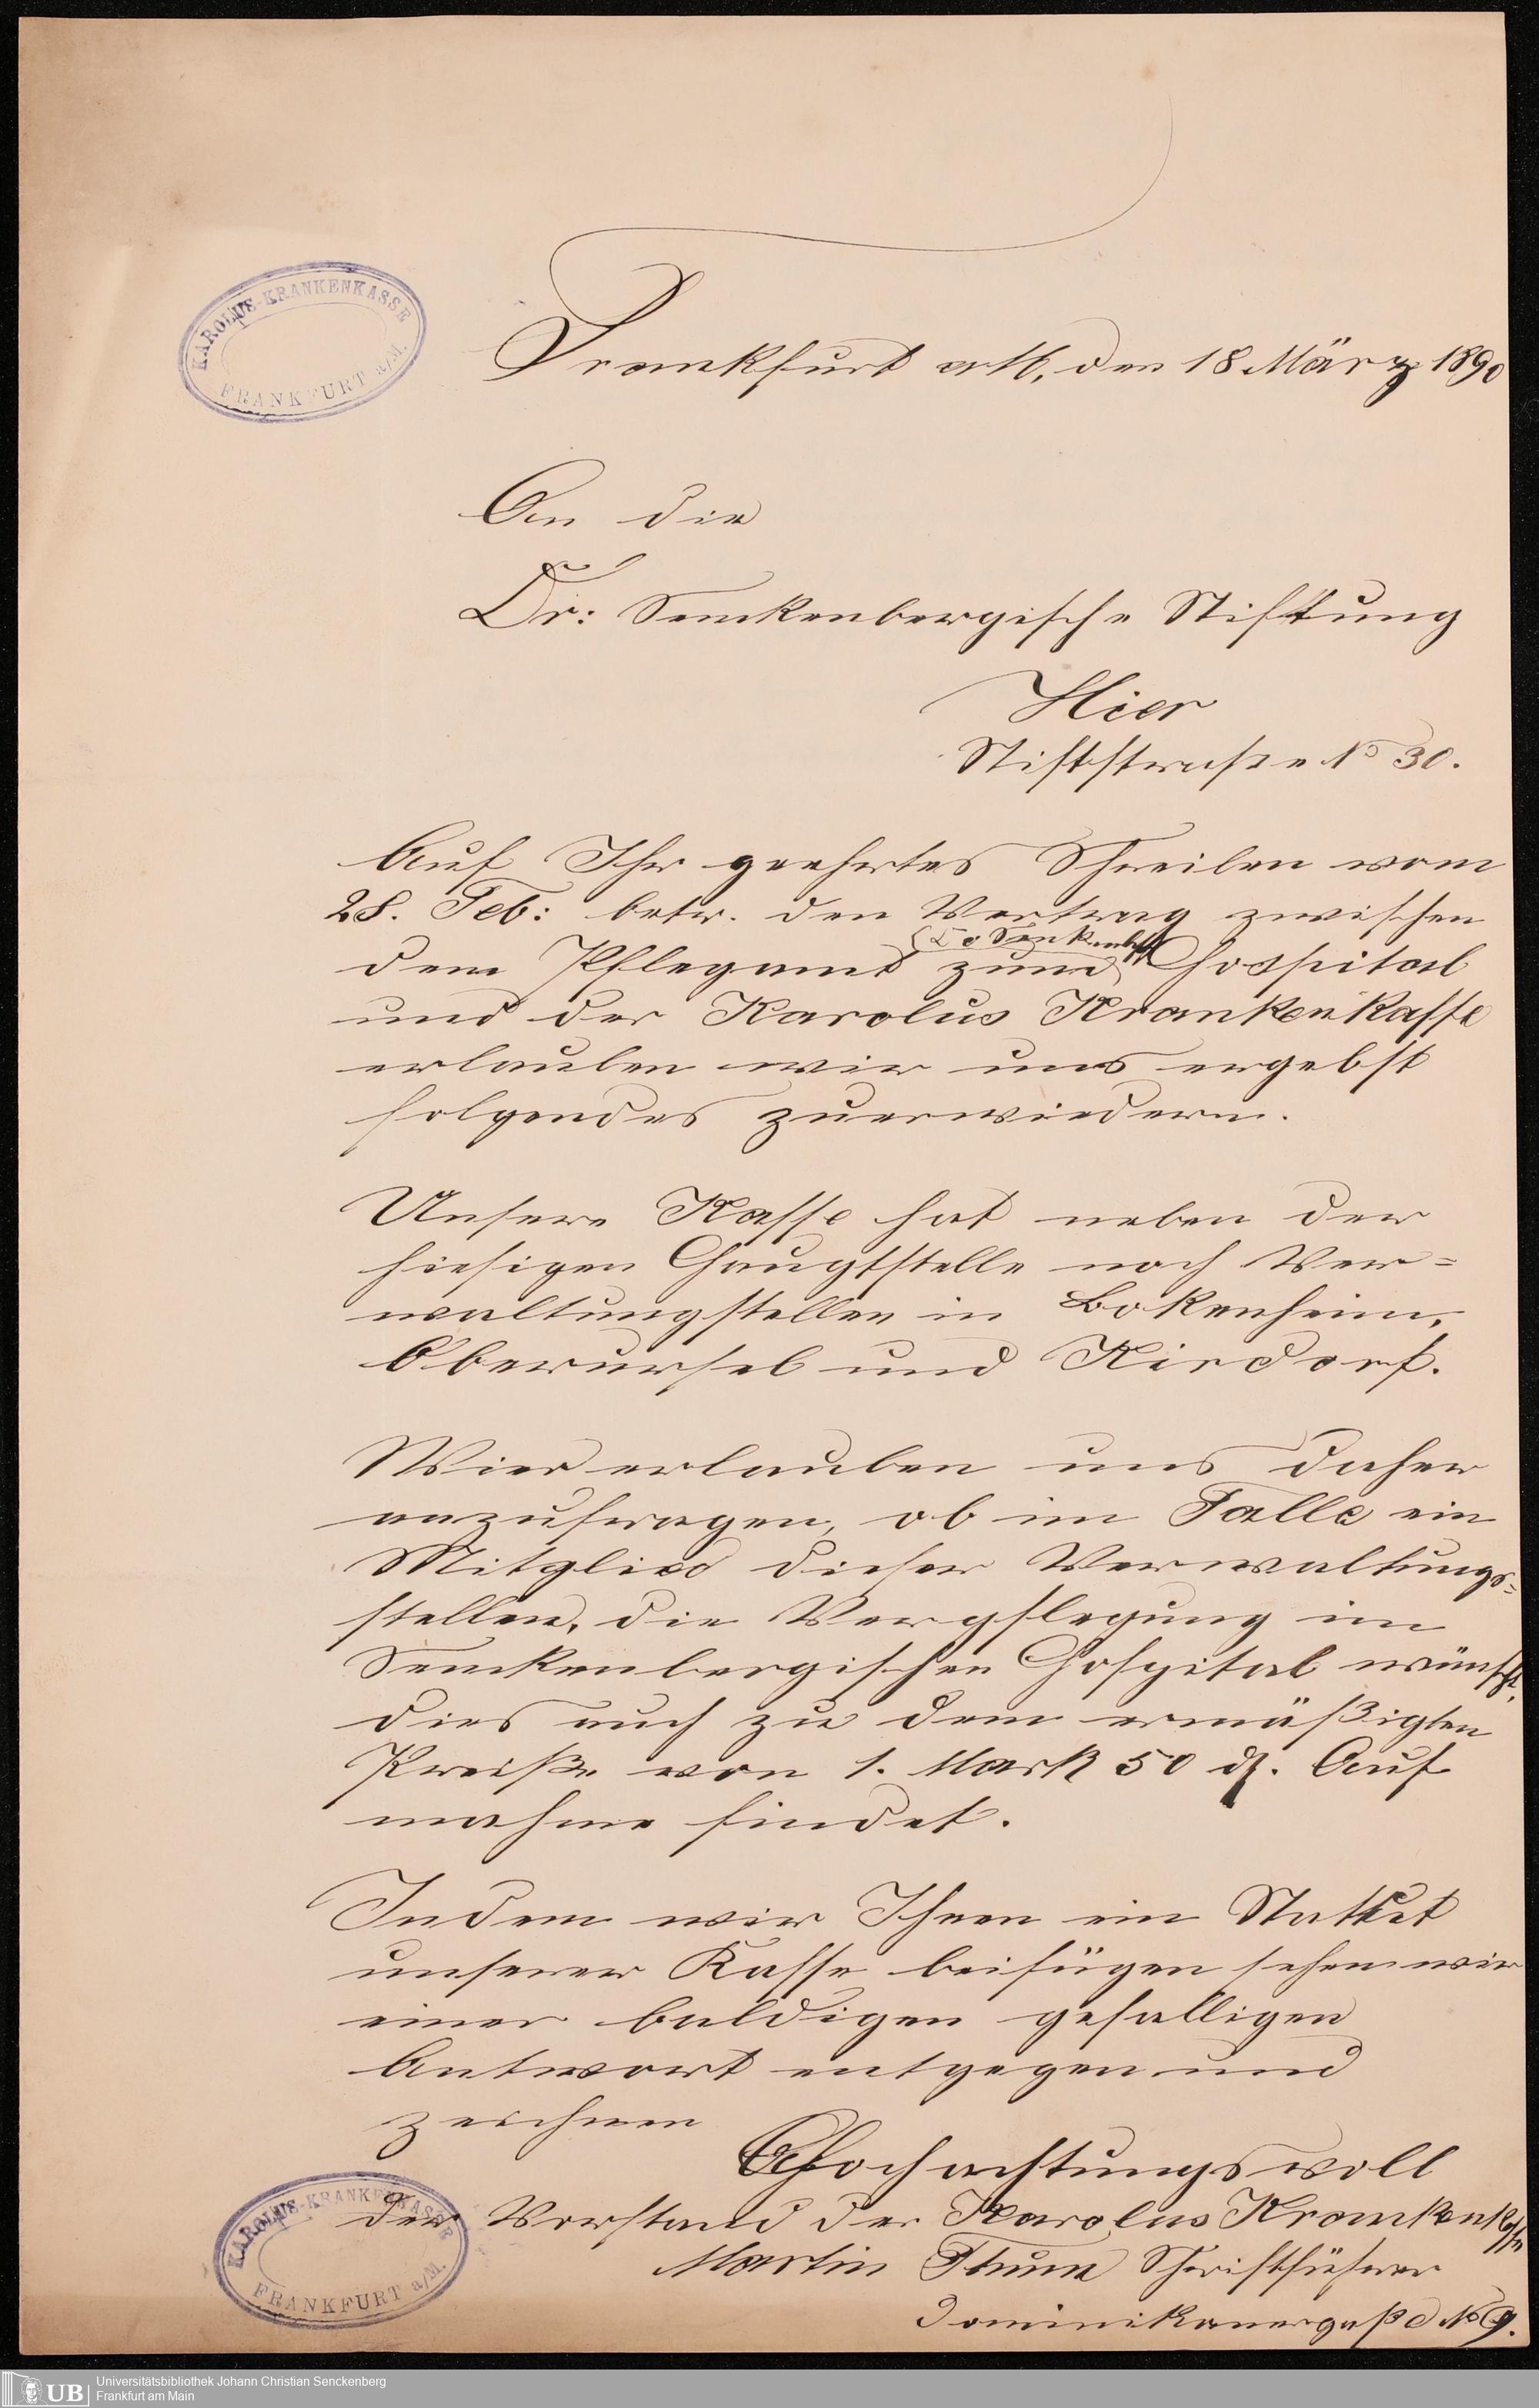 KAROLUS-KRANKENKASSE
FRANKFURT a/M.
Frankfurt a/M, den 18 März 1890
An die
Dr: Senckenbergische Stiftung
Hier
Stiftstraße No 30.
Auf Ihr geehrtes Schreiben vom
28. Feb: betr. den Vertrag zwischen
dem Pflegamt zum Hospital
und der Karolus Krankenkasse
erlauben wir uns ergebst
folgendes zuerwiedern.
Unsere Kasse hat neben der
hiesigen Hauptstelle noch Ver=
waltungstellen in Bokenheim,
Oberursel und Kirdorf.
Wier erlauben uns daher
anzufragen, ob im Falle ein
Mitglied dieser Verwaltungs=
stellen, die Verpflegung im
Senckenbergischen Hospital wünscht,
dies auch zu dem ermäßigten
Preiße von 1. Mark 50 ₰. Auf
nahme findet.
Indem wir Ihnen ein Stattut
unserer Kasse beifügen sehen wir
einer baldigen gefalligen
Antwort entgegen und
zeichnen
Hochachtungsvoll
Der Vorstand der Karolus Krankenkasse
Martin Thum Schriftführer
Dominikanergaße No 9.
KAROLUS-KRANKENKASSE
FRANKFURT a/M.
UB
Universitätsbibliothek Johann Christian Senckenberg
Frankfurt am Main